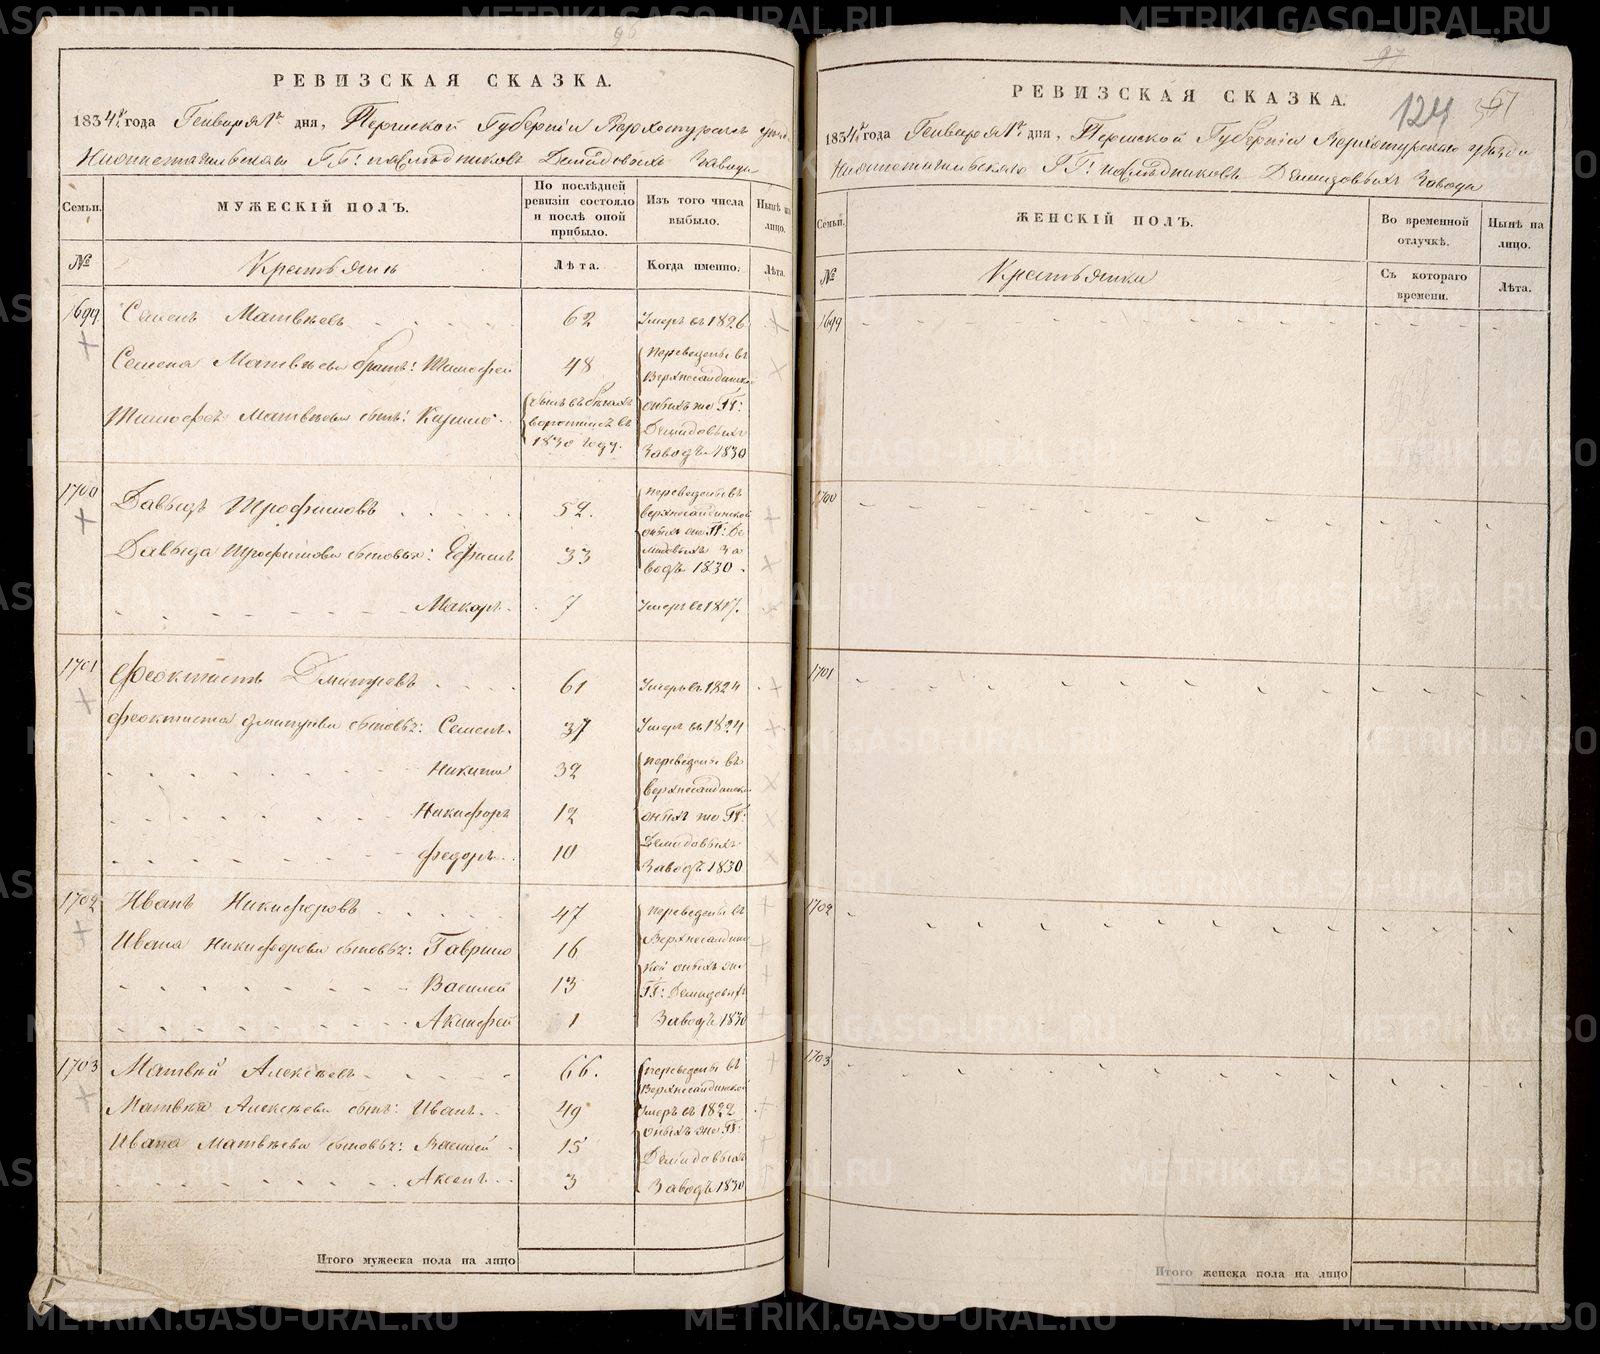 РЕВИЗСКАЯ СКАЗКА.
1834 года Генваря 1 дня, Пермской Губернiи Верхотурскаго уезда
Нижнетагильскаго ГГ: наследниковъ Демидовыхъ Завода
Семьи.
МУЖЕСКIЙ ПОЛЪ.
По послѣдней ревизiи состояло и послѣ оной прибыло.
Изъ того числа выбыло.
Нынѣ на лицо.
№
Крестьяне
Лѣта.
Когда именно.
Лѣта.
1699 Семенъ Матвѣевъ 62 Умеръ въ 1826
Семена Матвѣева братъ: Тимофей 48 переведены въ Верхнесалдинской
Тимофея Матвѣева сынъ: Кирило въ бѣгахъ въ 1830 году. оныхъ же ГГ: Демидовыхъ Заводъ 1830
1700 Давыдъ Трофимовъ 52. переведены въ верхнесалдинской
Давыда Трофимова сыновья: Ефимъ 33 оныхъ же ГГ: Демидовыхъ Заводъ 1830.
Макаръ 7 Умеръ въ 1817.
1701 Феоктистъ Дмитревъ 61 Умеръ въ 1824
Феоктиста Дмитрева сыновья: Семенъ. 37 Умеръ въ 1824
Никита 32 переведены въ верхнесалдинской
Никифоръ 12 оныхъ же ГГ:
Федоръ 10 Демидовыхъ Заводъ 1830
1702 Иванъ Никифоровъ 47 переведены въ
Ивана Никифорова сыновья: Гаврило 16 Верхнесалдин
Василей 13 ской оныхъ же ГГ: Демидовыхъ
Акинфей 1 Заводъ 1830
1703 Матвей Алексѣевъ 66. переведены въ Верхнесалдинской
Матвея Алексѣева сынъ: Иванъ 49 Умеръ въ 1822
Ивана Матвѣева сыновья: Василей 15 оныхъ же ГГ: Демидовыхъ
Аксенъ 3 Заводъ 1830
Итого мужеска пола на лицо
97
124
РЕВИЗСКАЯ СКАЗКА.
1834 года Генваря 1 дня, Пермской Губернiи Верхотурскаго уезда
Нижнетагильскаго ГГ: наследниковъ Демидовыхъ Завода
Семьи.
ЖЕНСКIЙ ПОЛЪ.
Во временной отлучкѣ.
Нынѣ на лицо.
№
Крестьянки
Съ котораго времени.
Лѣта.
1699
1700
1701
1702
1703
Итого женска пола на лицо
METRIKI.GASO-URAL.RU